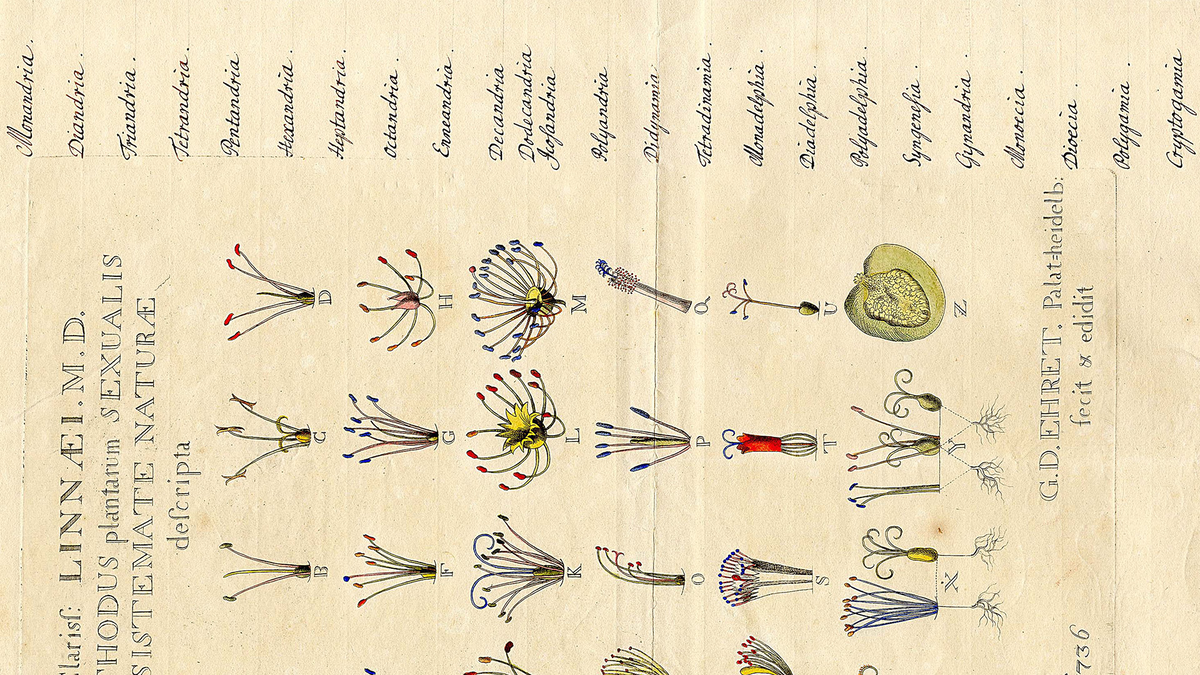 Clarisſ: LINNÆI. M. D.
THODUS plantarum SEXUALIS
SISTEMATE NATURÆ
deſcripta
B C D
F G H
K L M
O P Q
S T U
X Y Z
G. D. EHRET. Palat=heidelb:
fecit & edidit
736
Monandria.
Diandria.
Triandria.
Tetrandria.
Pentandria
Hexandria.
Heptandria.
Octandria.
Enneandria.
Decandria
Dodecandria
Jcoſandria.
Polyandria
Didynamia.
Tetradinamia
Monadelphia.
Diadelphia.
Polyadelphia.
Syngeneſia.
Gynandria.
Monoecia.
Dioecia.
Polygamia.
Cryptogamia